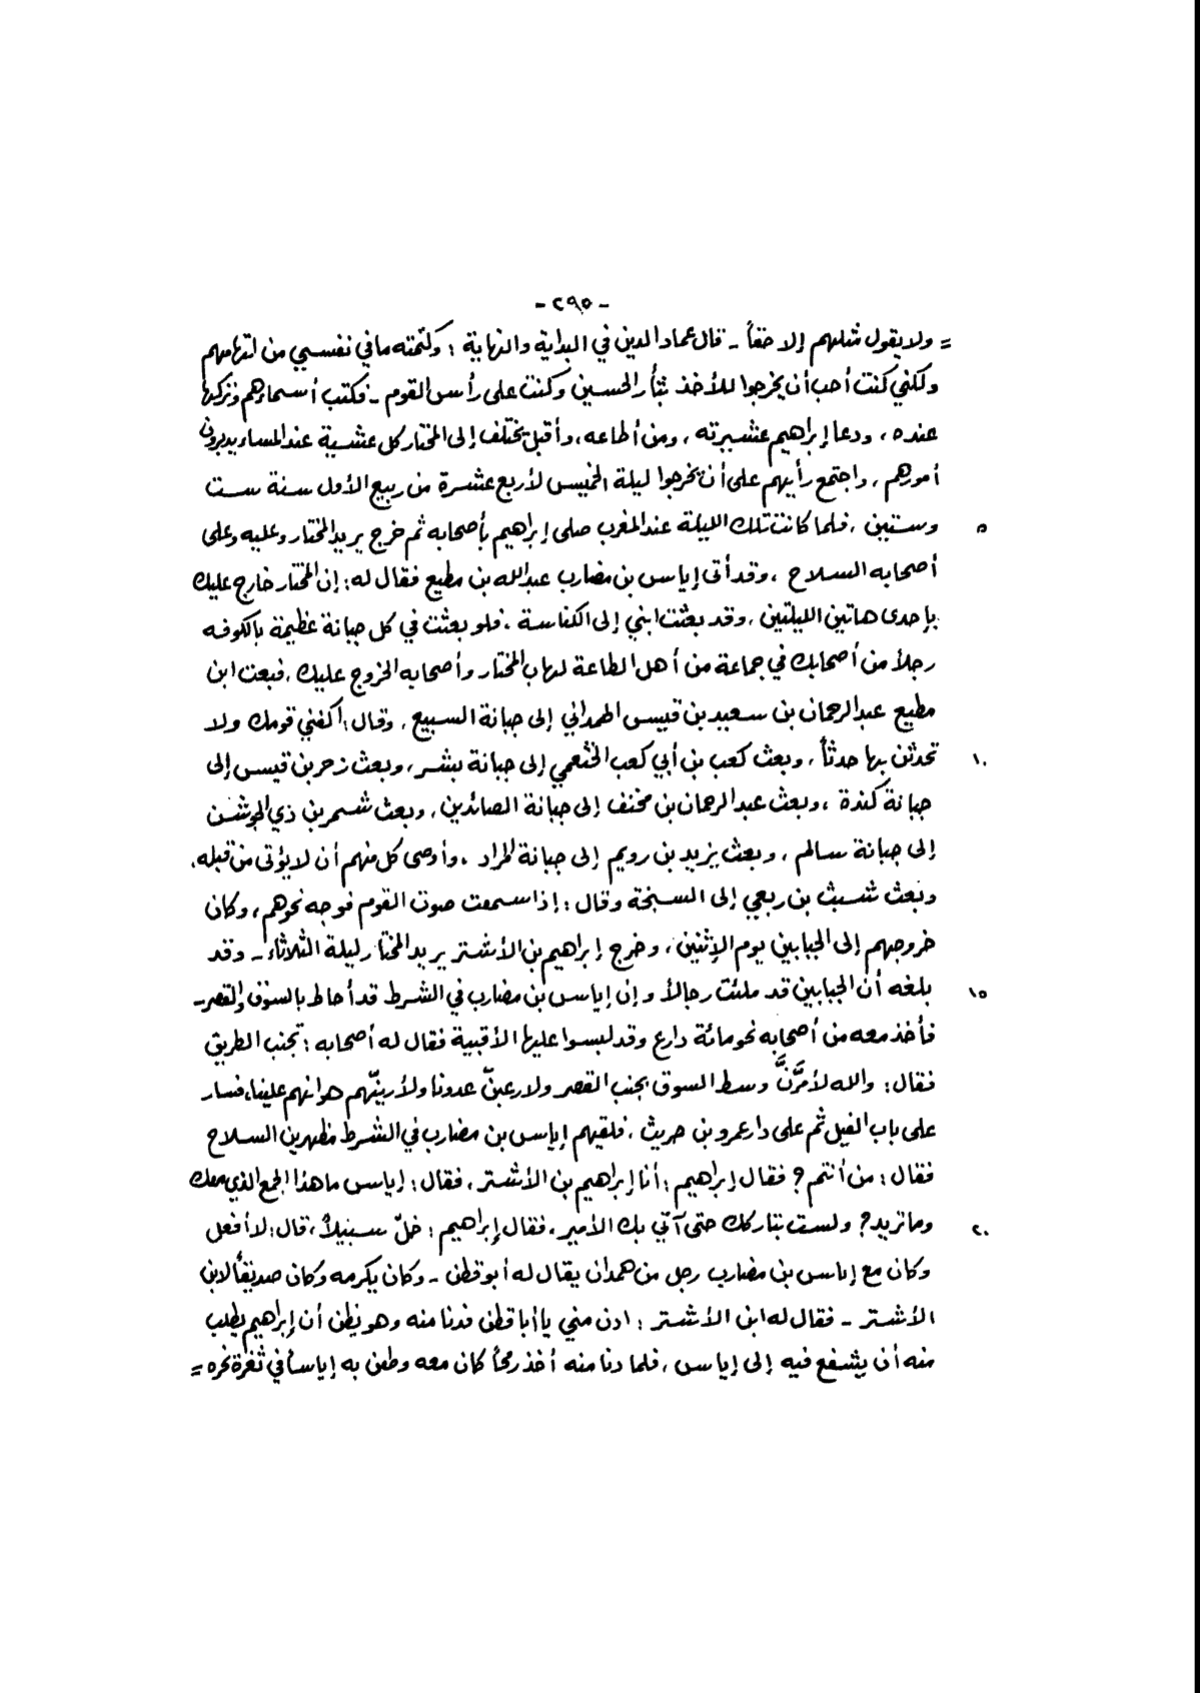 - ٢٩٥ -
= ولا يقول مثلهم إلا حقاً - قال عماد الدين في البداية والنهاية : وكتمته ما في نفسي من اتهامهم
ولكني كنت أحب أن يخرجوا للأخذ بثأر الحسين وكنت على رأس القوم - فكتب أسماءهم وتركها
عنده ، ودعا إبراهيم عشيرته ، ومن أطاعه ، وأقبل يختلف إلى المختار كل عشية عند المساء يديرون
أمورهم ، واجتمع رأيهم على أن يخرجوا ليلة الخميس لأربع عشرة من ربيع الأول سنة ست
٥ وستين ، فلما كانت تلك الليلة عند المغرب صلى إبراهيم بأصحابه ثم خرج يريد المختار وعليه وعلى
أصحابه السلاح ، وقد أتى إياس بن مضارب عبد الله بن مطيع فقال له : إن المختار خارج عليك
بإحدى هاتين الليلتين ، وقد بعثت ابني إلى الكناسة ، فلو بعثت في كل جبانة عظيمة بالكوفه
رجلاً من أصحابك في جماعة من أهل الطاعة لهاب المختار وأصحابه الخروج عليك ، فبعث ابن
مطيع عبد الرحمان بن سعيد بن قيس الهمداني إلى جبانة السبيع ، وقال : اكفني قومك ولا
١٠ تحدثن بها حدثاً ، وبعث كعب بن أبي كعب الخثعمي إلى جبانة بشر ، وبعث زحر بن قيس إلى
جبانة كندة ، وبعث عبد الرحمان بن مخنف إلى جبانة الصائدين ، وبعث شمر بن ذي الجوشن
إلى جبانة سالم ، وبعث يزيد بن رويم إلى جبانة المراد ، وأوصى كل منهم أن لا يؤتى من قبله ،
وبعث شبث بن ربعي إلى السبخة وقال : إذا سمعت صوت القوم فوجه نحوهم ، وكان
خروجهم إلى الجبابين يوم الإثنين ، وخرج إبراهيم بن الأشتر يريد المختار ليلة الثلاثاء - وقد
١٥ بلغه أن الجبابين قد ملئت رجالاً وإن إياس بن مضارب في الشرط قد أحاط بالسوق والقصر -
فأخذ معه من أصحابه نحو مائة دارع وقد لبسوا عليها الأقبية فقال له أصحابه : تجنب الطريق
فقال : والله لأمرَّنَّ وسط السوق بجنب القصر ولأرعبنّ عدونا ولأرينّهم هوانهم علينا ، فسار
على باب الفيل ثم على دار عمرو بن حريث ، فلقيهم إياس بن مضارب في الشرط مظهرين السلاح
فقال : من أنتم ؟ فقال إبراهيم : أنا إبراهيم بن الأشتر ، فقال : إياس ما هذا الجمع الذي معك
٢٠ وما تريد ؟ ولست بتاركك حتى آتي بك الأمير ، فقال إبراهيم : خلّ سبيلاً ، قال : لا أفعل
وكان مع إياس بن مضارب رجل من همدان يقال له أبو قطن - وكان يكرمه وكان صديقاً لابن
الأشتر - فقال له ابن الأشتر : ادن مني يا أبا قطن فدنا منه وهو يظن أن إبراهيم يطلب
منه أن يشفع فيه إلى إياس ، فلما دنا منه أخذ رمحاً كان معه وطعن به إياساً في ثغرة نحره =